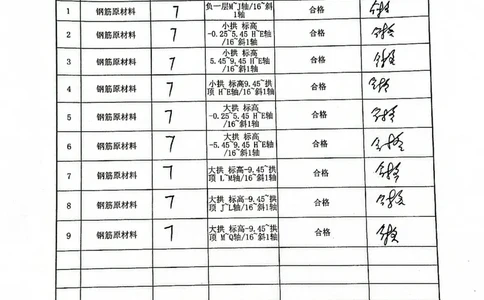 1 钢筋原材料 7 负一层M~J轴/16~斜1轴 合格 合格
2 钢筋原材料 7 小拱 标高-0.25~5.45 H~E轴/16~斜1轴 合格 合格
3 钢筋原材料 7 小拱 标高5.45~9.45 H~E轴/16~斜1轴 合格 合格
4 钢筋原材料 7 小拱 标高9.45~拱顶 H~E轴/16~斜1轴 合格 合格
5 钢筋原材料 7 大拱 标高-0.25~5.45 H~E轴/16~斜1轴 合格 合格
6 钢筋原材料 7 大拱 标高-5.45~9.45 H~E轴/16~斜1轴 合格 合格
7 钢筋原材料 7 大拱 标高-9.45~拱顶 L~M轴/16~斜1轴 合格 合格
8 钢筋原材料 7 大拱 标高-9.45~拱顶 J~L轴/16~斜1轴 合格 合格
9 钢筋原材料 7 大拱 标高-9.45~拱顶 M~Q轴/16~斜1轴 合格 合格